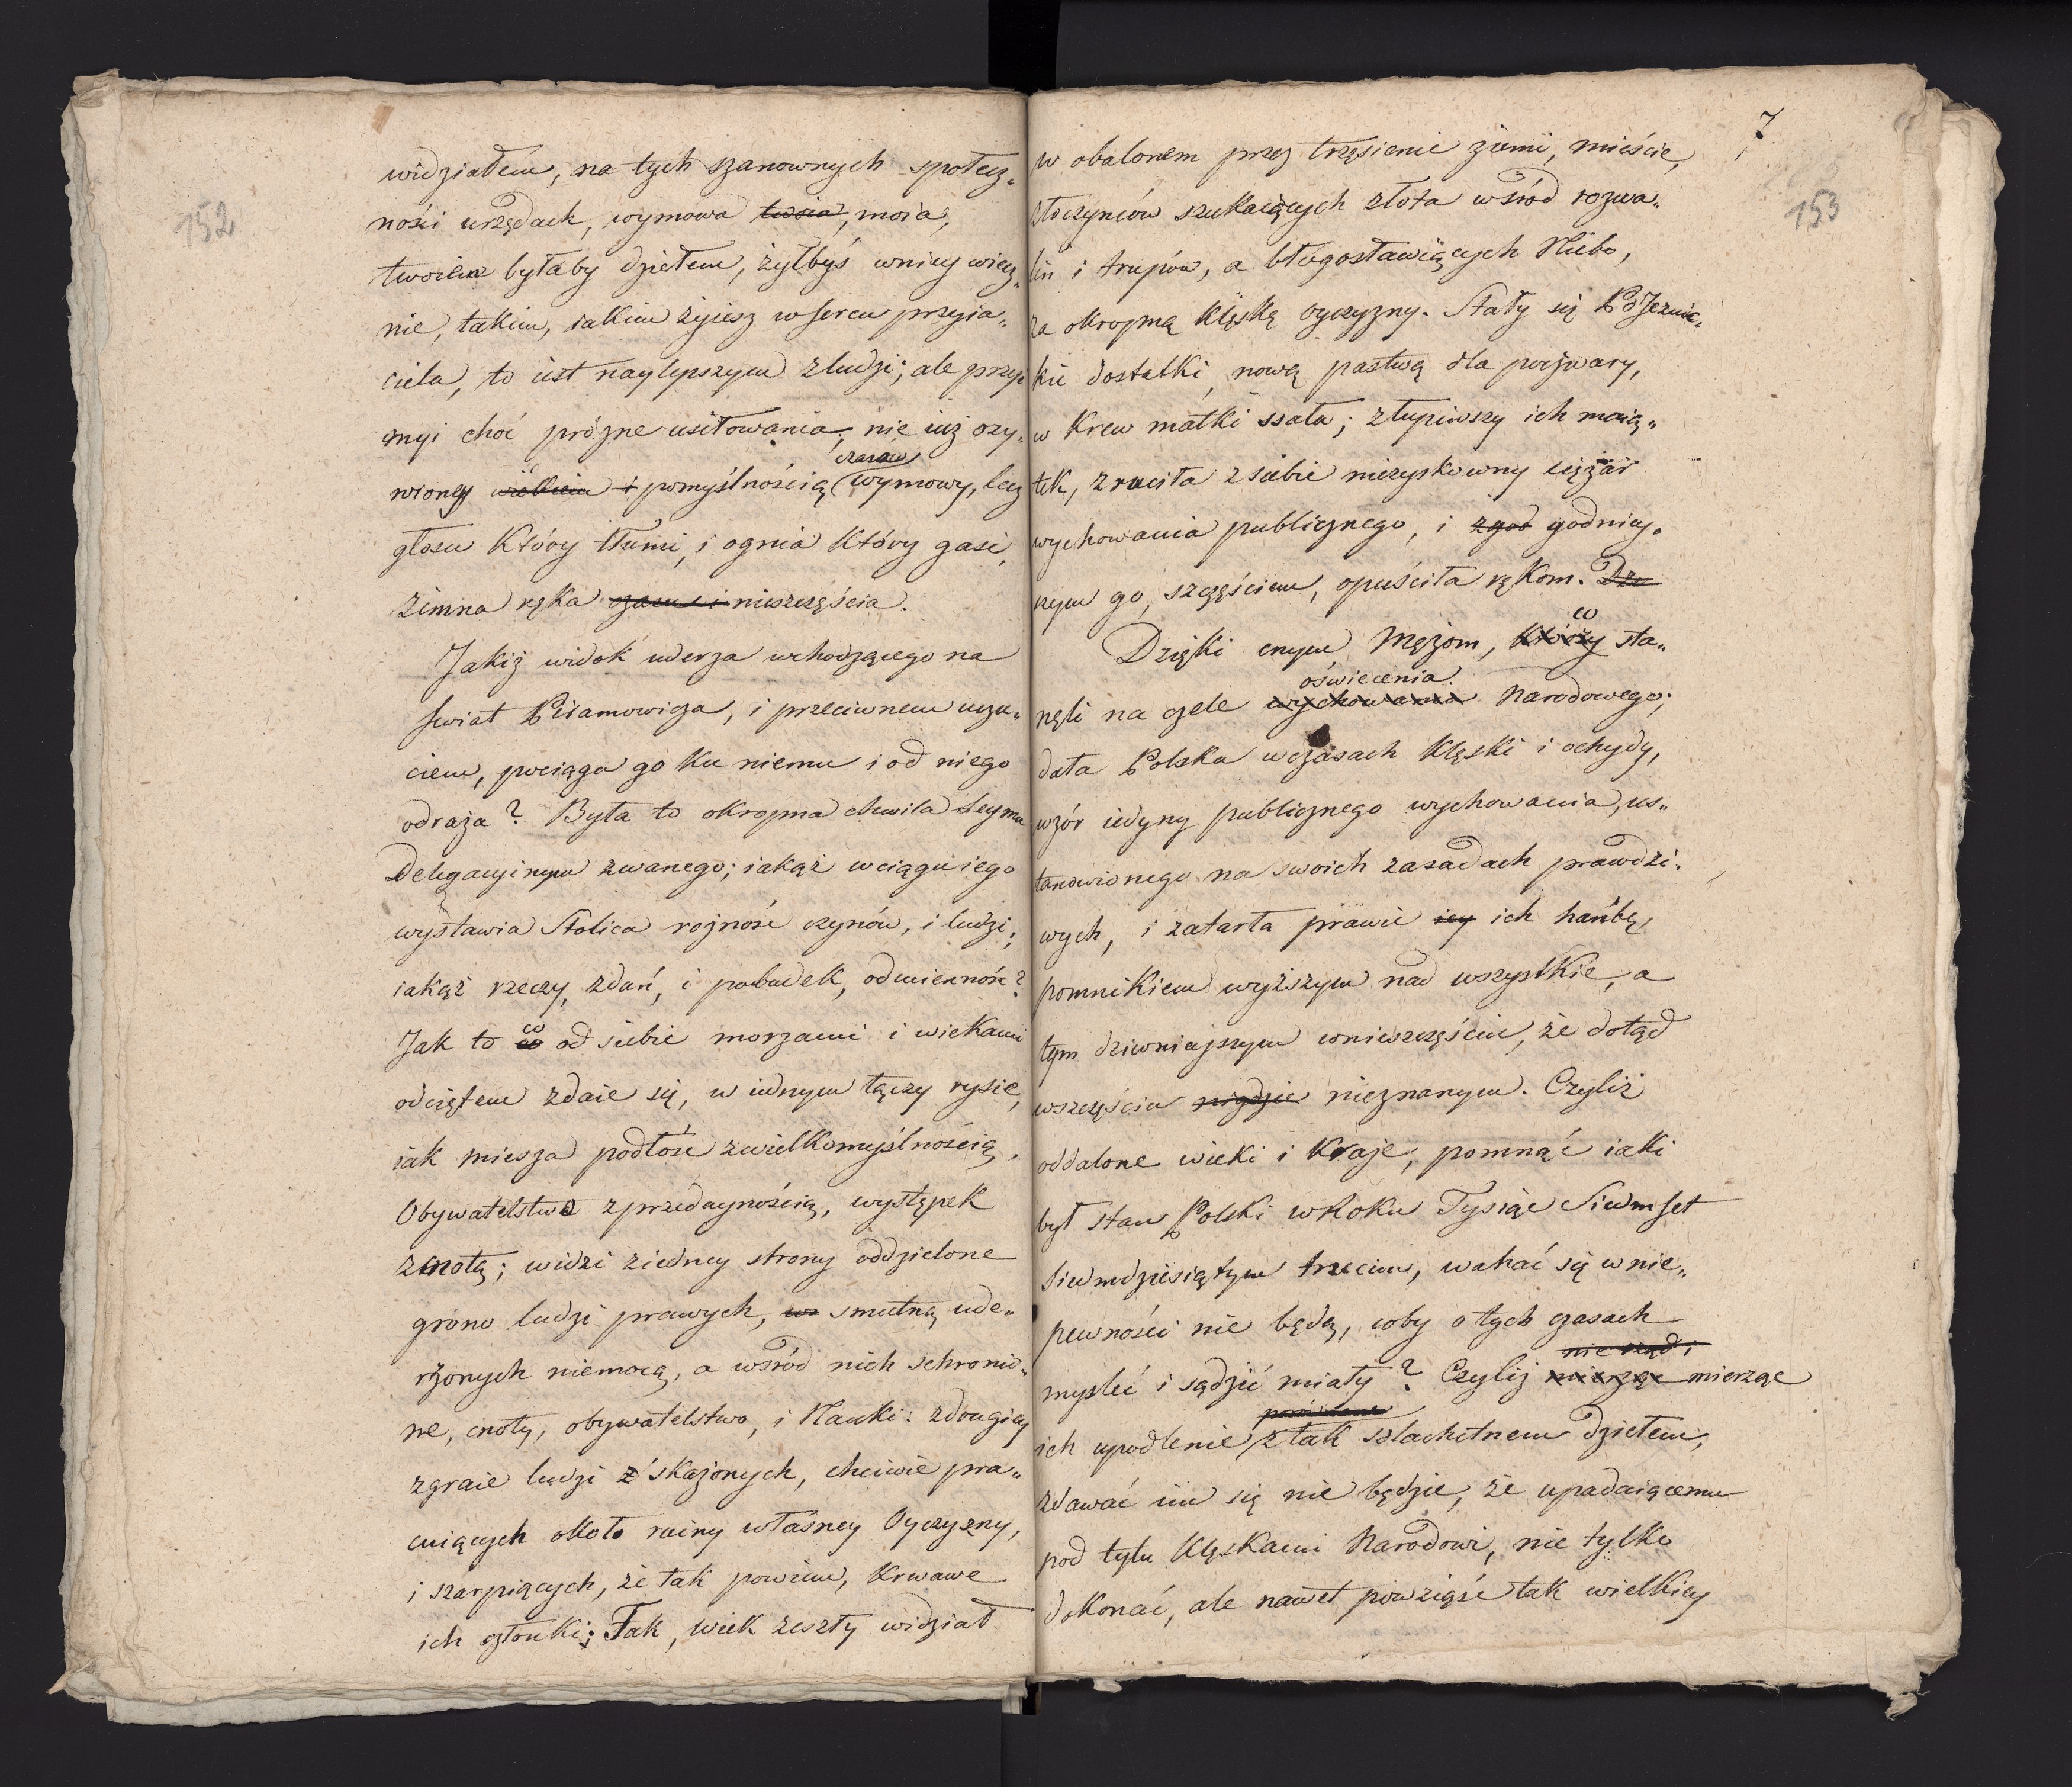 152
widziałem, na tych szanownych społecz„
ności urzędach, wymowa twoia, moia,
twoiem byłaby dziełem, żyłbyś wniey wiecz„
nie, takim, iakim żyiesz w sercu przyia„
ciela, to iest naylepszym z ludzi; ale przy„
myi choć prózne usiłowania, nie iuż ozy„
czasów
wioney wiekiem i pomyślnością wymowy, lecz
głosu który tłumi, i ognia który gasi,
zimna ręka czasu i nieszczęścia.
Jakiż widok uderza wchodzącego na
świat Piramowicza, i przeciwnem uczu„
ciem, pociąga go ku niemu i od niego
odraża? Była to okropna chwila Seymu
Delegacyinym zwanego; iakąż wciągu iego
wystawia Stolica rożność czynów, i ludzi;
iakąż rzeczy, zdań, i pobudek, odmienność?
co
Jak to co od siebie morzami i wiekami
odciętem zdaie się, w iednym łączy rysie,
iak miesza podłość z wielkomyślnością,
Obywatelstwo z przedaynością, występek
z cnotą; widzi ziedney strony oddzielone
grono ludzi prawych, w smutną ude„
rzonych niemocą, a wśród nich schronio„
ne, cnoty, obywatelstwo, i Nauki: zdrugiey
zgraie ludzi z skażonych, chciwie pra„
cuiących około ruiny własney Oyczyzny,
i szarpiących, że tak powiem, krwawe
ich członki; Tak, wiek zeszły widział
7
153
w obalonem przez trzęsienie ziemi, mieście,
złoczyńców szukaiących złota wśród rozwa„
lin i trupów, a błogosławiących Niebo,
za okropną klęskę oyczyzny. Stały się PoJezuic„
kie dostatki, nową pastwą dla poczwary,
w krew matki ssała; złupiwszy ich maią„
tek, zruciła z siebie niezyskowny ciężar
wychowania publicznego, i zgod godniey„
szym go, szczęściem, opuściła rękom. Dzo
co
Dzięki cnym Mężom, którzy sta„
oświecenia.
nęli na czele wychowania Narodowego;
dała Polska wczasach klęski i ochydy,
wzór iedyny publicznego wychowania, us„
tanowionego na swoich zasadach prawdzi„
wych, i zatarła prawie iey ich hańbę,
pomnikiem wyższym nad wszystkie, a
tym dziwnieyszym wnieszczęściu, że dotąd
wszczęściu nigdzie nieznanym. Czyliż
oddalone wieki i kraje, pomnąć iaki
był stan Polski w Roku Tysiąc Siedmset
Siedmdziesiątym trzecim, wahać się w nie„
pewności nie będą, coby o tych czasach
nie rząd i
mysleć i sądzić miały? Czyliż mierząc mierząc
ich upodlenie z tak szlachetnem dziełem,
zdawać im się nie będzie, że upadaiącemu
pod tylu klęskami Narodowi, nie tylko
dokonać, ale nawet powziąść tak wielkiey